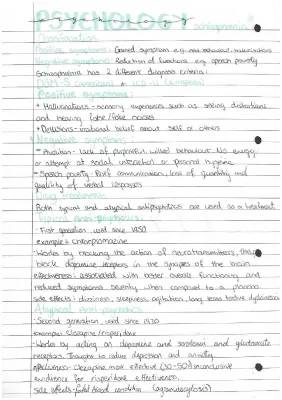 PSYCHOLOGY schizophrenia
Classification
Positive symptoms: Gained symptom e.g.
Negative symptoms: Reduction of functions e.g. speech poverty
Schizophrenia has 2 different diagnosis criteria:
DSM-5
Positive symptoms:
+ Hallucinations - sensory experiences such as seeing distortions
and hearing fake/false noises
+ Delusions - irrational belief about self or others
Negative symptoms:
- Avolition - lack of purposeful willed behaviour. No energy
or attempt at social interaction or personal hygiene
- Speech poverty. Brief communication, loss of quantity and
quality of verbal responses
Both typical and atypical antipsychotics are used as a treatment
Typical Anti-psychotics:
- First generation used since 1950
example = Chlorpromazine
- Works by reducing the action of neurotransmitters, they
block dopamine receptors in the synapses of the brain
effectiveness: associated with better overall functioning and
reduced symptoms severity when compared to a placebo
side effects: dizziness, sleepiness, agitation, long term tardive dyskinesia
Atypical Anti-psychotics
Second generation used since 1970
example: Clozapine/risperidone
- Works by acting on dopamine and serotonin and glutamate
receptors. Thought to reduce depression and anxiety
effectiveness: Clozapine more effective (30-50%) inconclusive
evidence for risperidone effectiveness.
side effects: fatal blood condition (agranulocytosis)